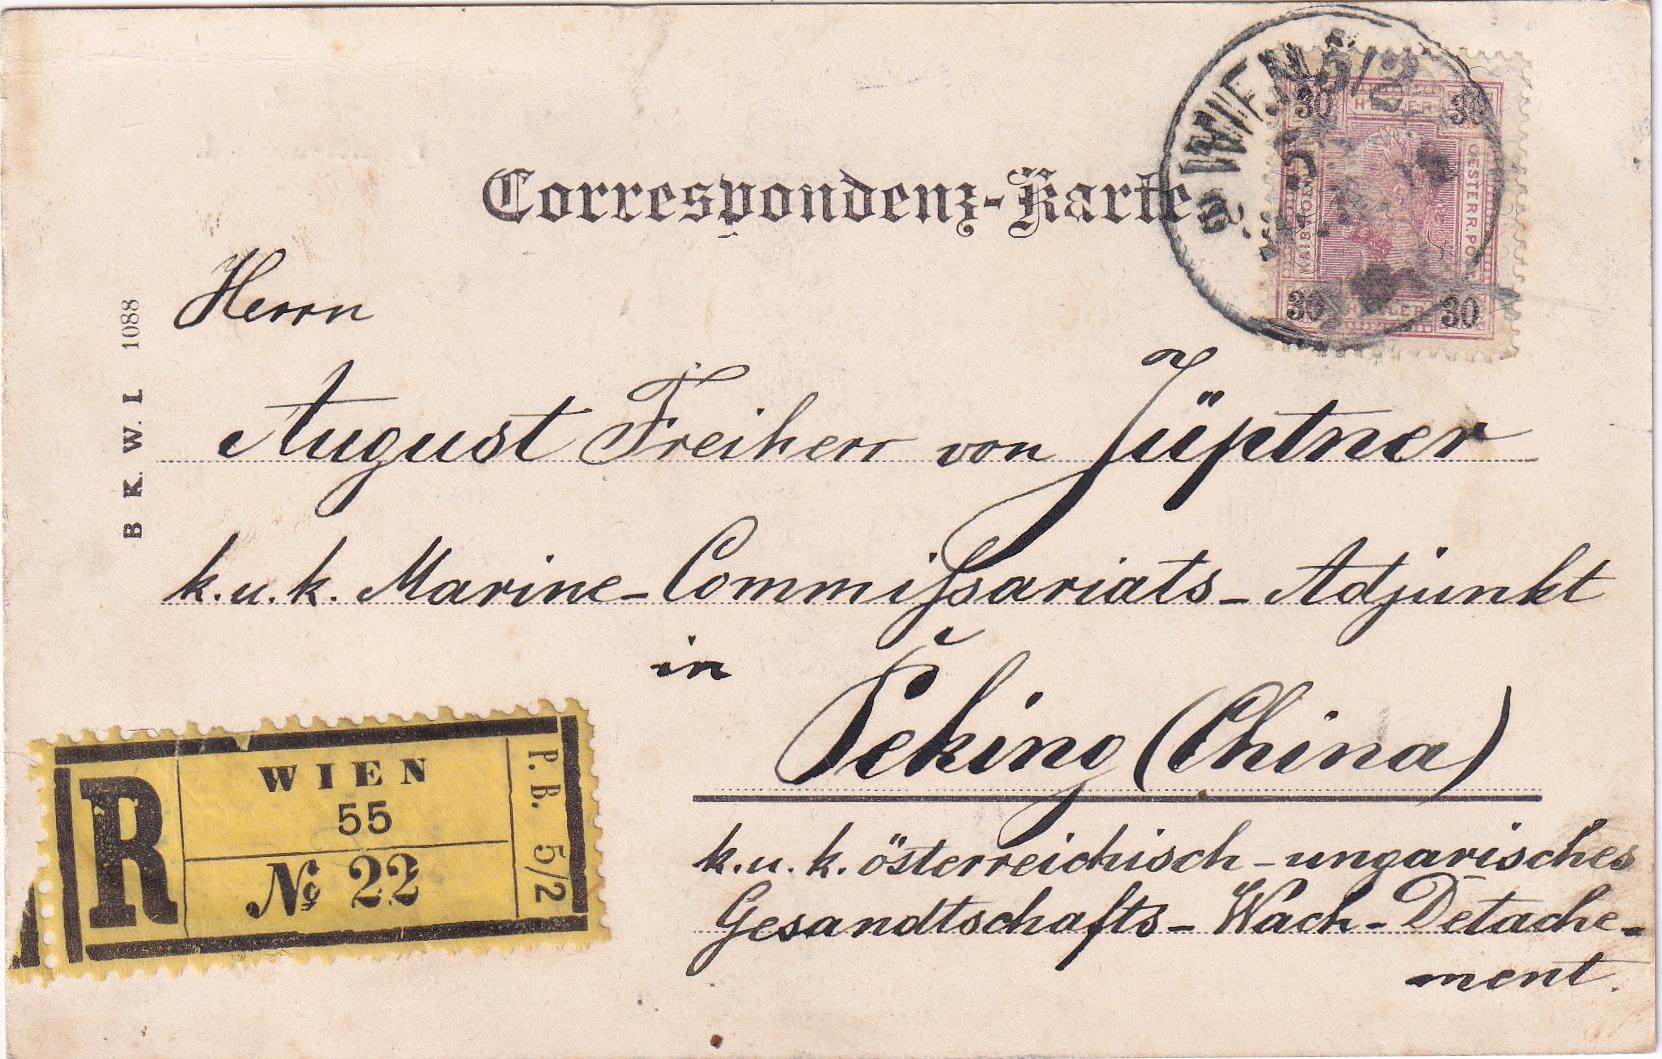 Correspondenz-Karte
WIEN 5/2
30 HELLER 30
OESTERR. POST
30 HELLER 30
Herrn
August Freiherr von Jüptner
k. u. k. Marine-Commißsariats-Adjunkt
in
Peking (China)
k. u. k. österreichisch-ungarisches
Gesandtschafts-Wach-Detache-
ment.
B K. W. I. 1088
R
WIEN
55
No 22
P. B. 5/2